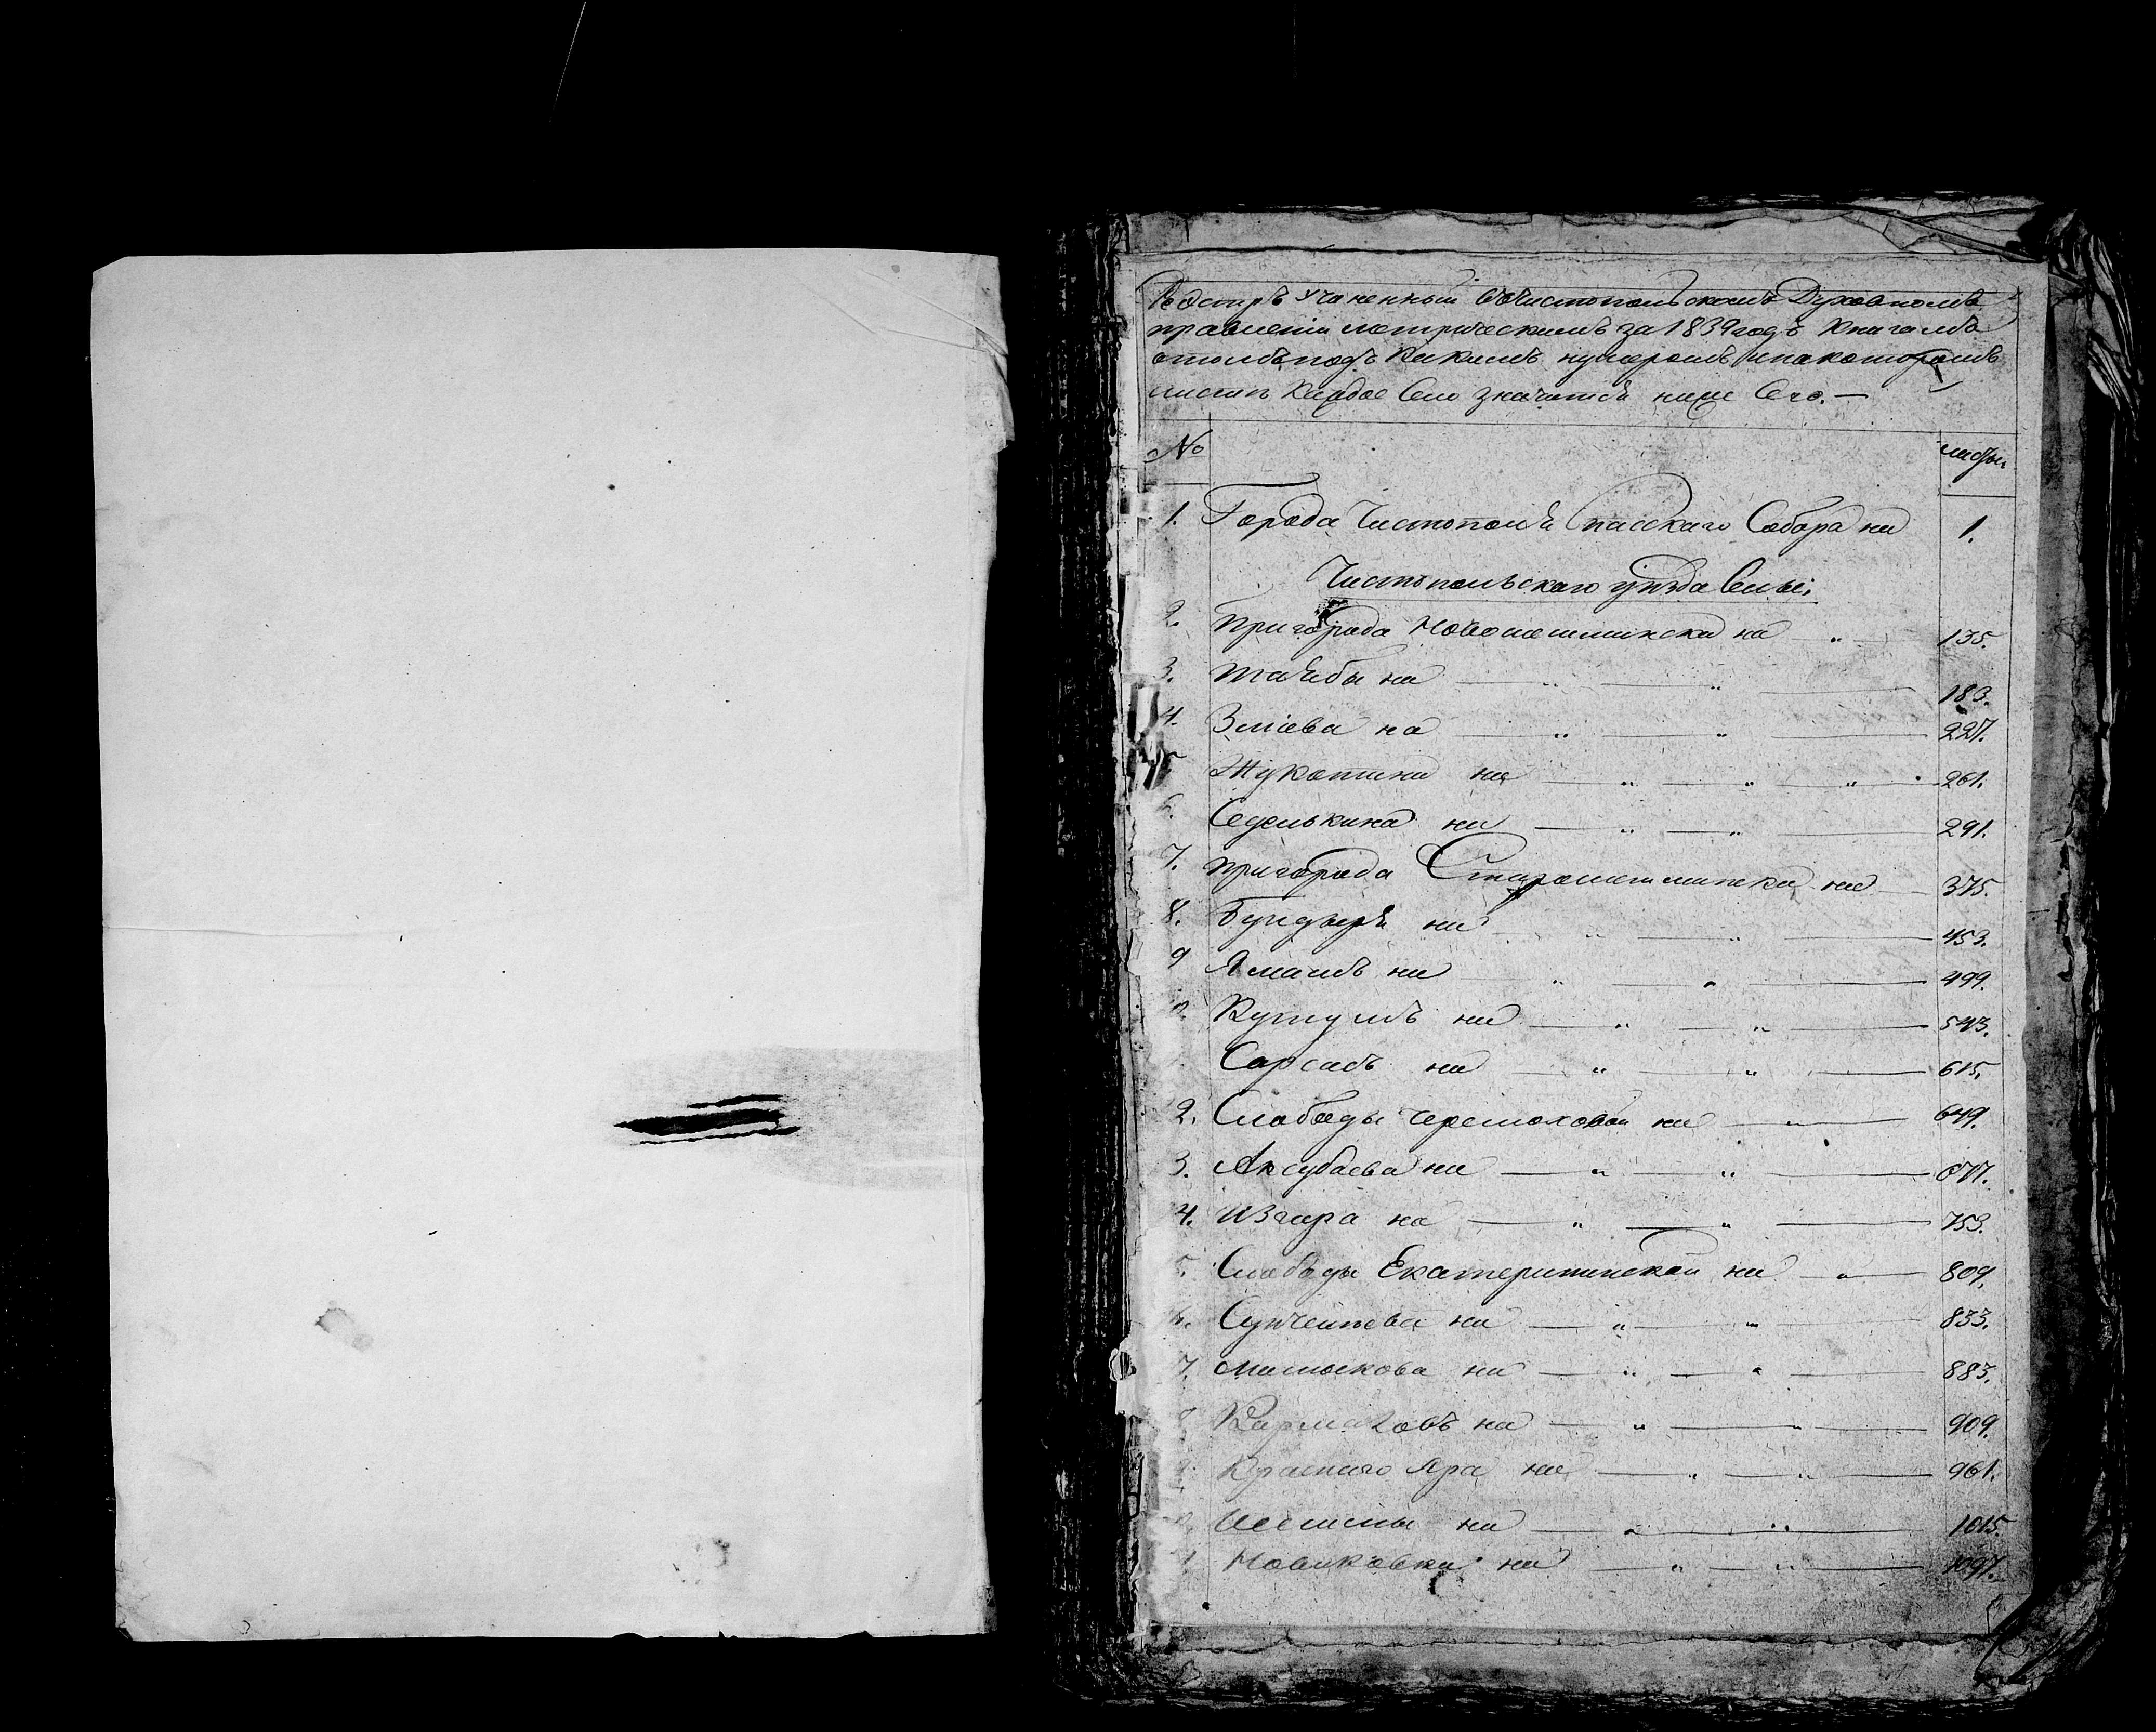 Реэстръ учиненный въ Чистопольскомъ Духовномъ
правленіи метрическимъ за 1839 годъ книгамъ
о томъ подъ какимъ нумеромъ и на которомъ
листѣ каждое Село значится ниже сего. —
№ листы
1. Города Чистополя Спасскаго Собора на 1.
Чистопольскаго уѣзда Селы:
2. Пригорода Новошешминска на — „ 135.
3. Таябы на — „ — „ — 183.
4. Зміева на — „ — „ — 227.
5 Жукотина на — „ — „ — „ — 261.
6. Седелькина на — „ — „ — 291.
7. Пригорода Старошешминска на — 375.
8. Булдыря на „ — „ — 453.
9 Ямашъ на — „ — „ — 499.
0. Кутушъ на — „ — „ — 543.
Сарсасъ на — „ — „ — 615.
2. Слободы Черемховой на — „ — 649.
3. Аксубаева на — „ — „ — 677.
4. Изгара на — „ — „ — 753.
5. Слободы Екатерининской на — „ — 809.
6. Сунчелѣева на — „ — „ — 833.
7. Мамыкова на — „ — „ — 883.
8 Кармаловъ на — „ — „ — 909.
9. Краснаго Яра на — „ — „ — 961.
0. на — „ — „ — 1015.
1 Новиковки на — „ — „ — 1097.